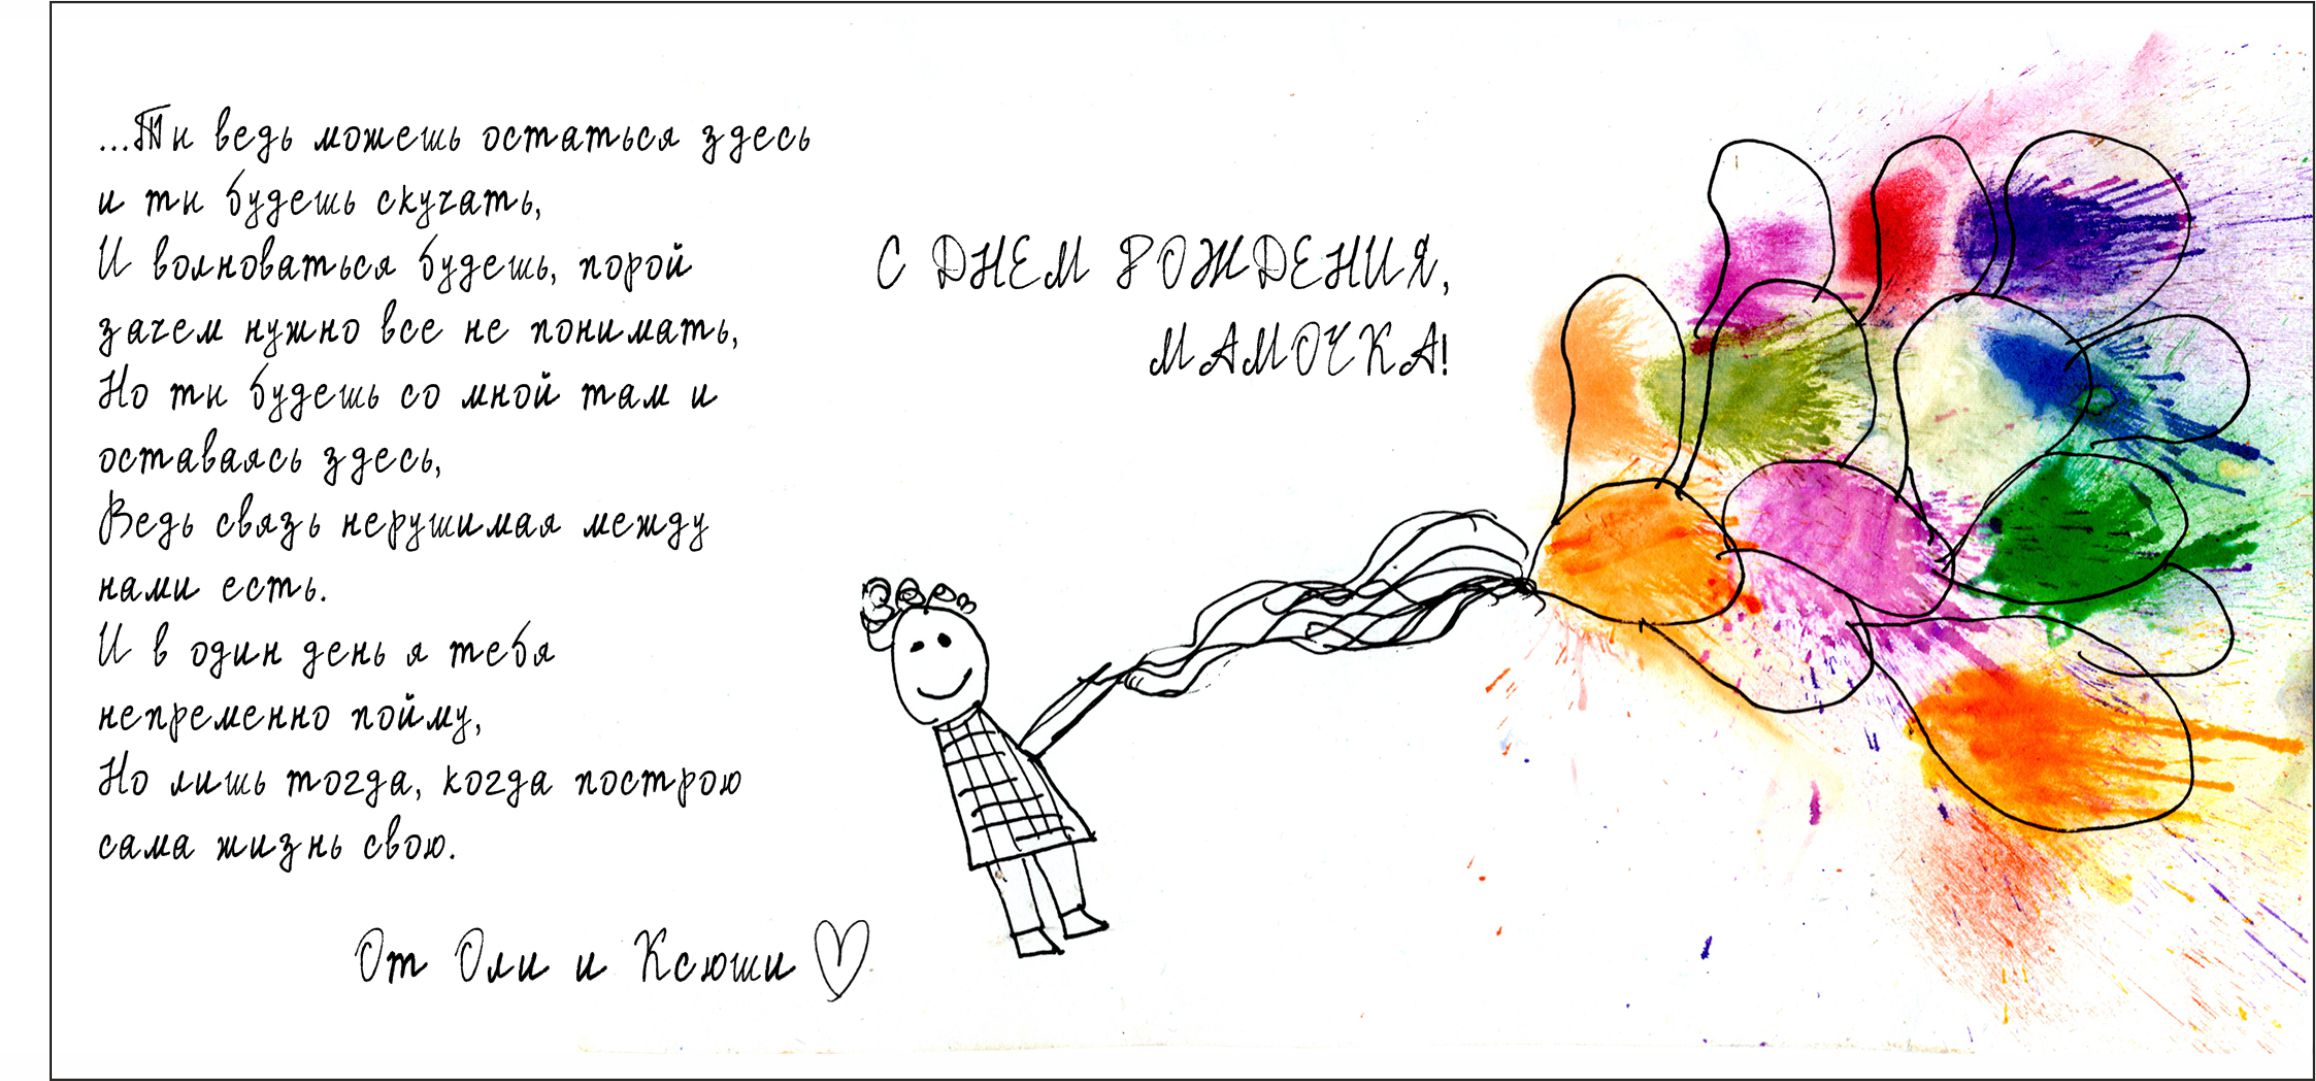 ...Ты ведь можешь остаться здесь
и ты будешь скучать,
И волноваться будешь, порой
зачем нужно все не понимать,
Но ты будешь со мной там и
оставаясь здесь,
Ведь связь нерушимая между
нами есть.
И в один день я тебя
непременно пойму,
Но лишь тогда, когда построю
сама жизнь свою.
От Оли и Ксюши
С ДНЕМ РОЖДЕНИЯ,
МАМОЧКА!